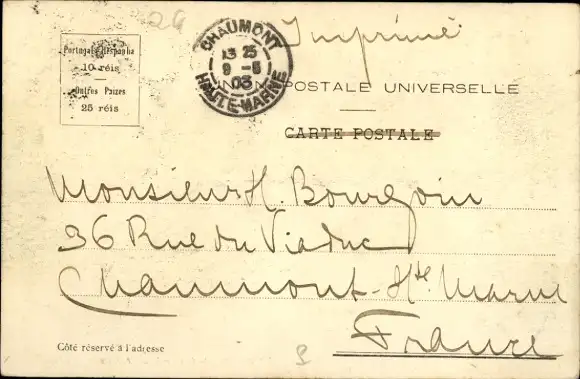 26
Imprimé
Portugal e Hespanha
10 réis
Outros Paizes
25 réis
CHAUMONT
25
9 - 5
03
HAUTE-MARNE
POSTALE UNIVERSELLE
CARTE POSTALE
Monsieur H. Bourgoin
36 Rue du Viaduc
Chaumont - Hte Marne
France
Côté réservé à l'adresse